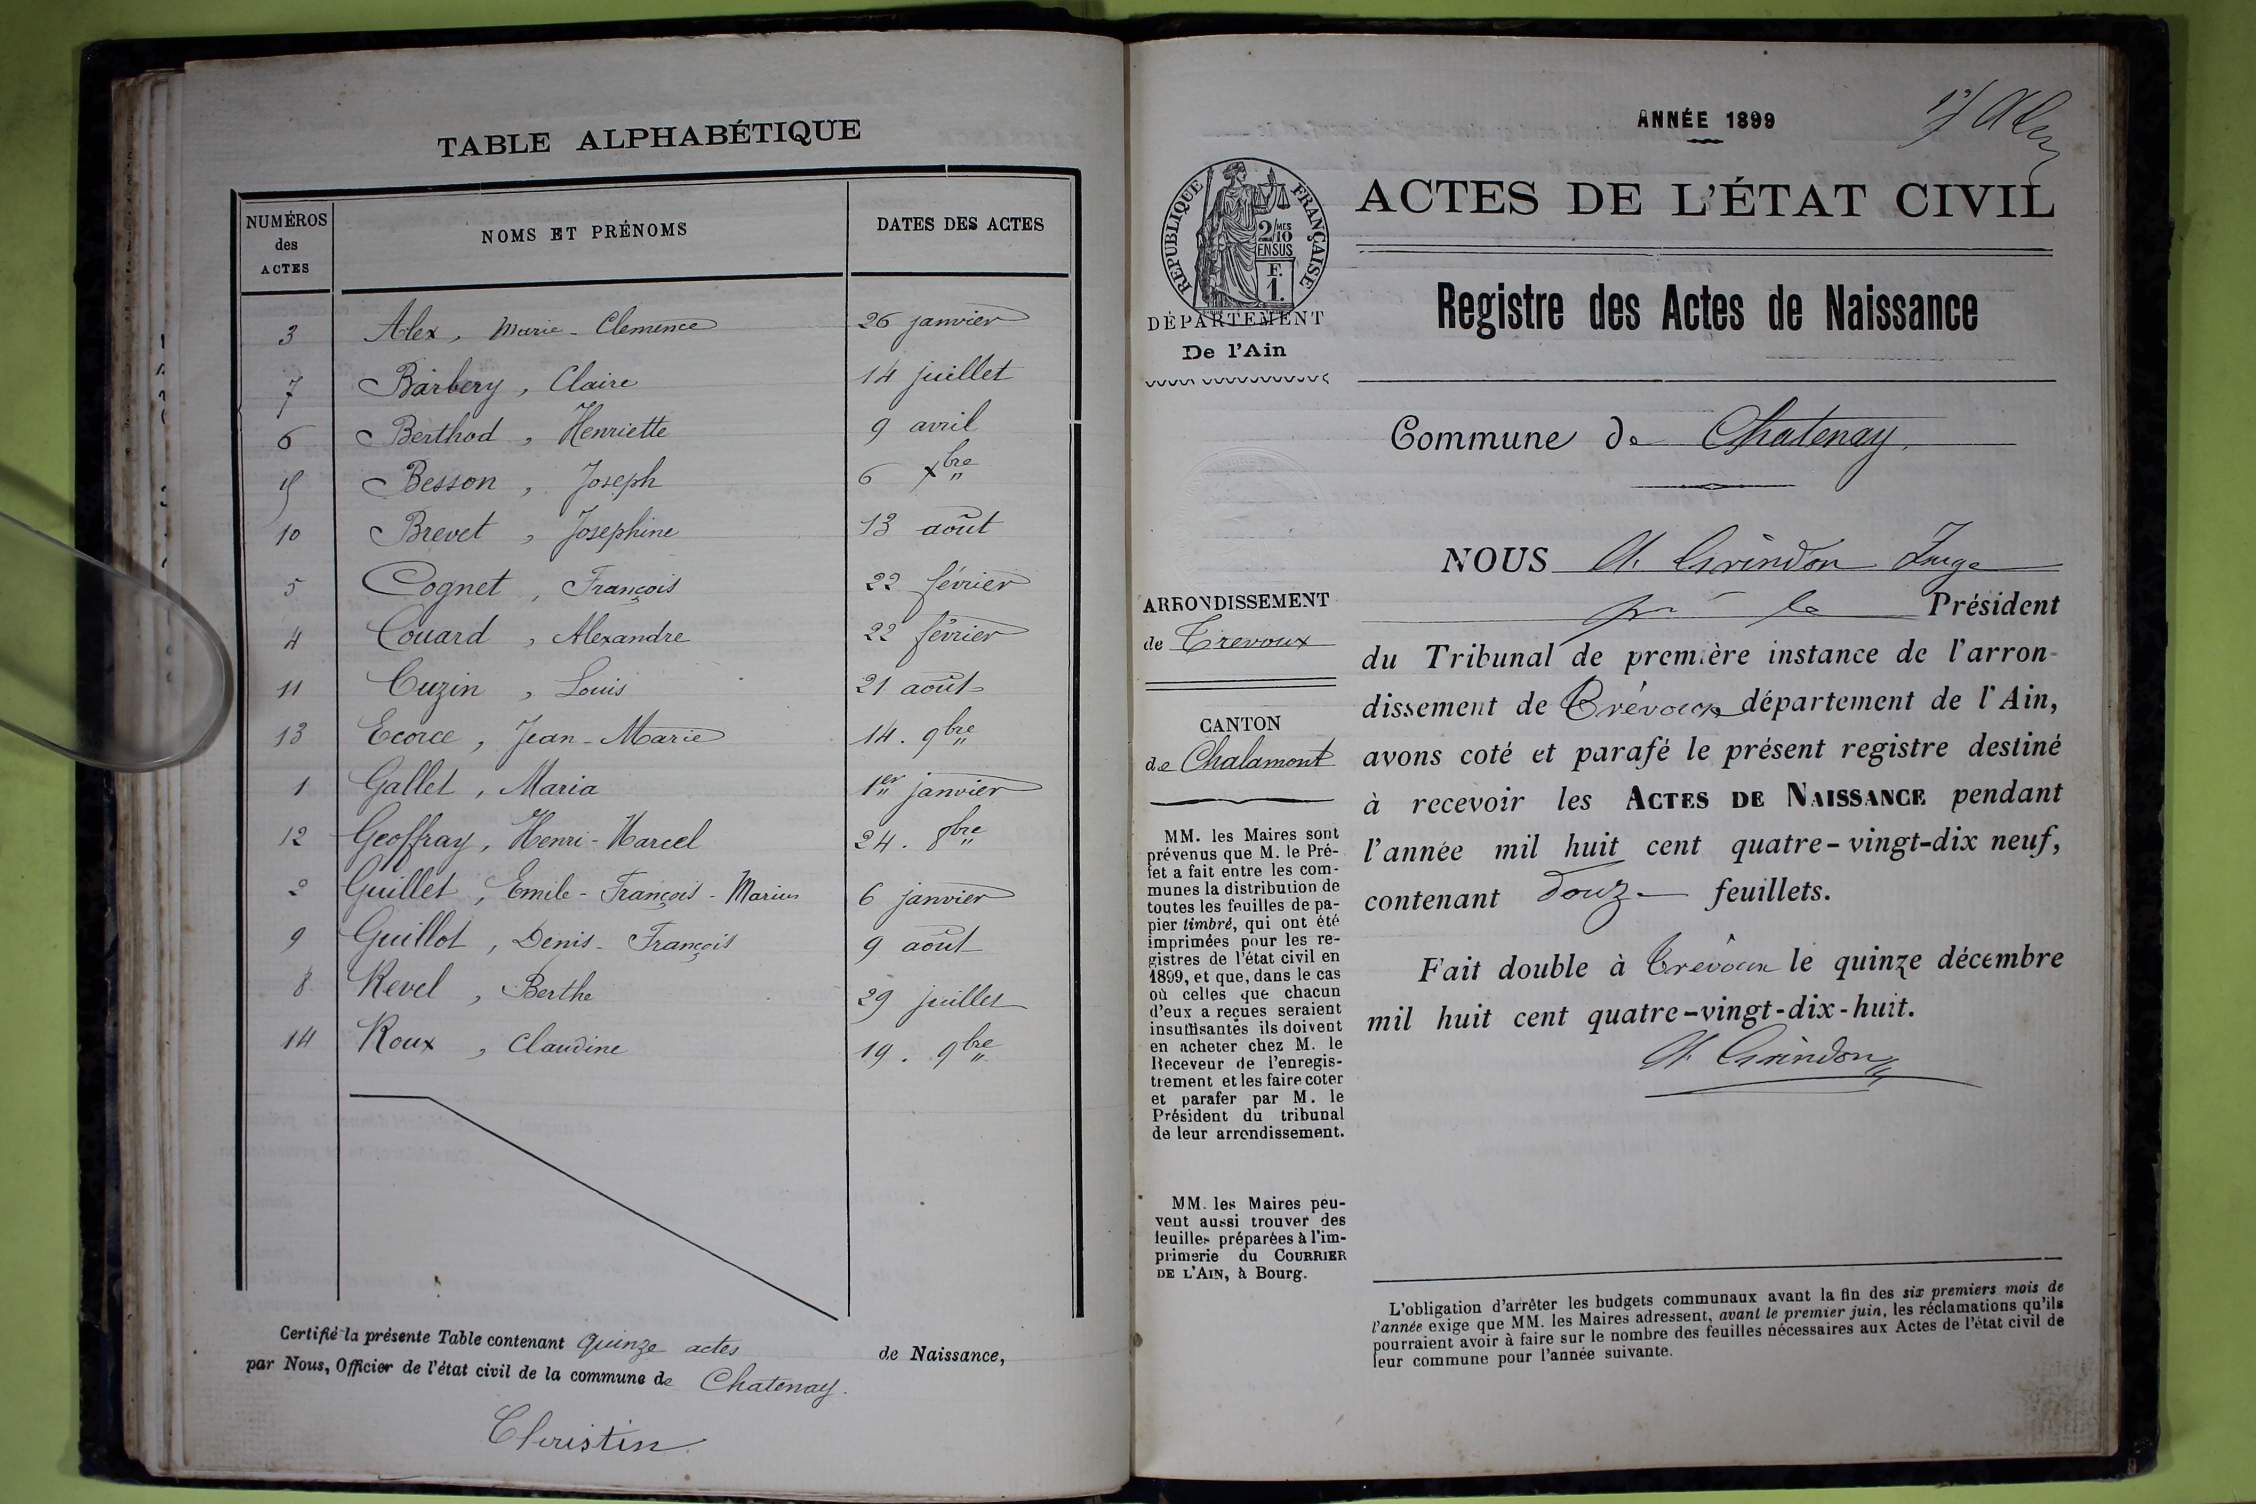 TABLE ALPHABÉTIQUE
NUMÉROS des ACTES NOMS ET PRÉNOMS DATES DES ACTES
3 Alex, Marie-Clemence 26 janvier
7 Barbery, Claire 14 juillet
6 Berthod, Henriette 9 avril
15 Besson, Joseph 6 Xbre
10 Brevet, Josephine 13 août
5 Cognet, François 22 février
4 Couard, Alexandre 22 février
11 Cuzin, Louis 21 août
13 Ecorce, Jean-Marie 14. 9bre
1 Gallet, Maria 1er janvier
12 Geoffray, Henri-Marcel 24. 8bre
2 Guillet, Emile-François-Marius 6 janvier
9 Guillot, Denis-François 9 août
8 Revel, Berthe 29 juillet
14 Roux, Claudine 19. 9bre
Certifié la présente Table contenant quinze actes de Naissance,
par Nous, Officier de l'état civil de la commune de Chatenay.
Christin
ANNÉE 1899
ACTES DE L'ÉTAT CIVIL
Registre des Actes de Naissance
RÉPUBLIQUE FRANÇAISE
2/10 MES
EN SUS
F.
1.
DÉPARTEMENT
De l'Ain
Commune de Chatenay.
ARRONDISSEMENT
de Trevoux
CANTON
de Chalamont
MM. les Maires sont
prévenus que M. le Pré-
fet a fait entre les com-
munes la distribution de
toutes les feuilles de pa-
pier timbré, qui ont été
imprimées pour les re-
gistres de l'état civil en
1899, et que, dans le cas
où celles que chacun
d'eux a reçues seraient
insuffisantes ils doivent
en acheter chez M. le
Receveur de l'enregis-
trement et les faire coter
et parafer par M. le
Président du tribunal
de leur arrondissement.
MM. les Maires peu-
vent aussi trouver des
feuilles préparées à l'im-
primerie du COURRIER
DE L'AIN, à Bourg.
NOUS A. Grindon Juge
pr le Président
du Tribunal de première instance de l'arron-
dissement de Trévoux département de l'Ain,
avons coté et parafé le présent registre destiné
à recevoir les ACTES DE NAISSANCE pendant
l'année mil huit cent quatre-vingt-dix neuf,
contenant douze feuillets.
Fait double à Trévoux le quinze décembre
mil huit cent quatre-vingt-dix-huit.
A. Grindon
L'obligation d'arrêter les budgets communaux avant la fin des six premiers mois de
l'année exige que MM. les Maires adressent, avant le premier juin, les réclamations qu'ils
pourraient avoir à faire sur le nombre des feuilles nécessaires aux Actes de l'état civil de
leur commune pour l'année suivante.